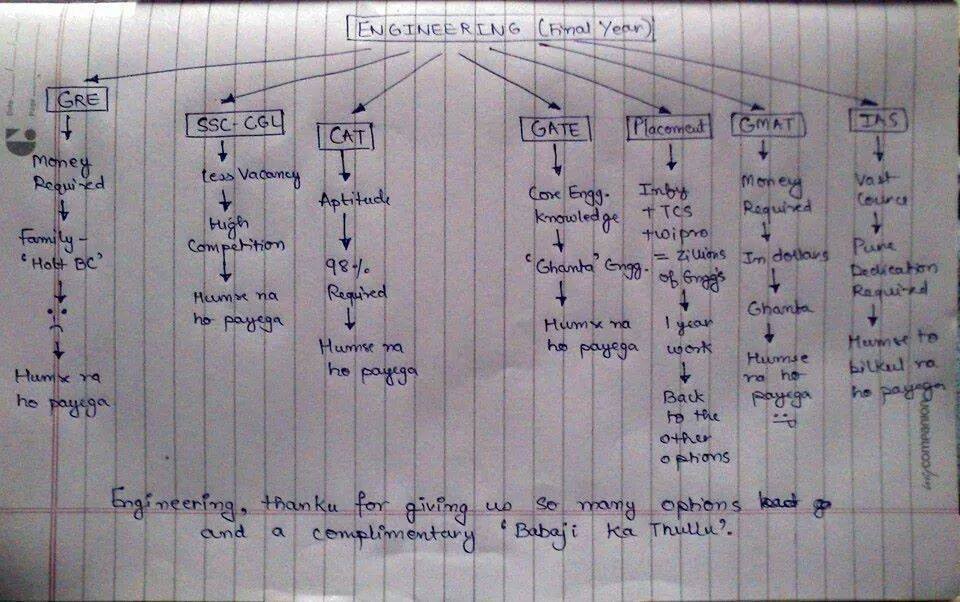 ENGINEERING (Final Year)
GRE
Money
Required
Family -
'Hatt BC'
:(
Humse na
ho payega
SSC-CGL
Less Vacancy
High
Competition
Humse na
ho payega
CAT
Aptitude
98%
Required
Humse na
ho payega
GATE
Core Engg.
Knowledge
'Ghanta' Engg.
Humse na
ho payega
Placement
Infy
+ TCS
+ wipro
= Zillions
of Engg's
1 year
work
Back
to the
other
options
GMAT
Money
Required
In dollars
Ghanta
Humse
na ho
payega
IAS
Vast
Cource
Pure
Dedication
Required
Humse to
bilkul na
ho payega
Engineering, thanku for giving us so many options
and a complimentary 'Babaji Ka Thullu'.
my companion
Date
Page